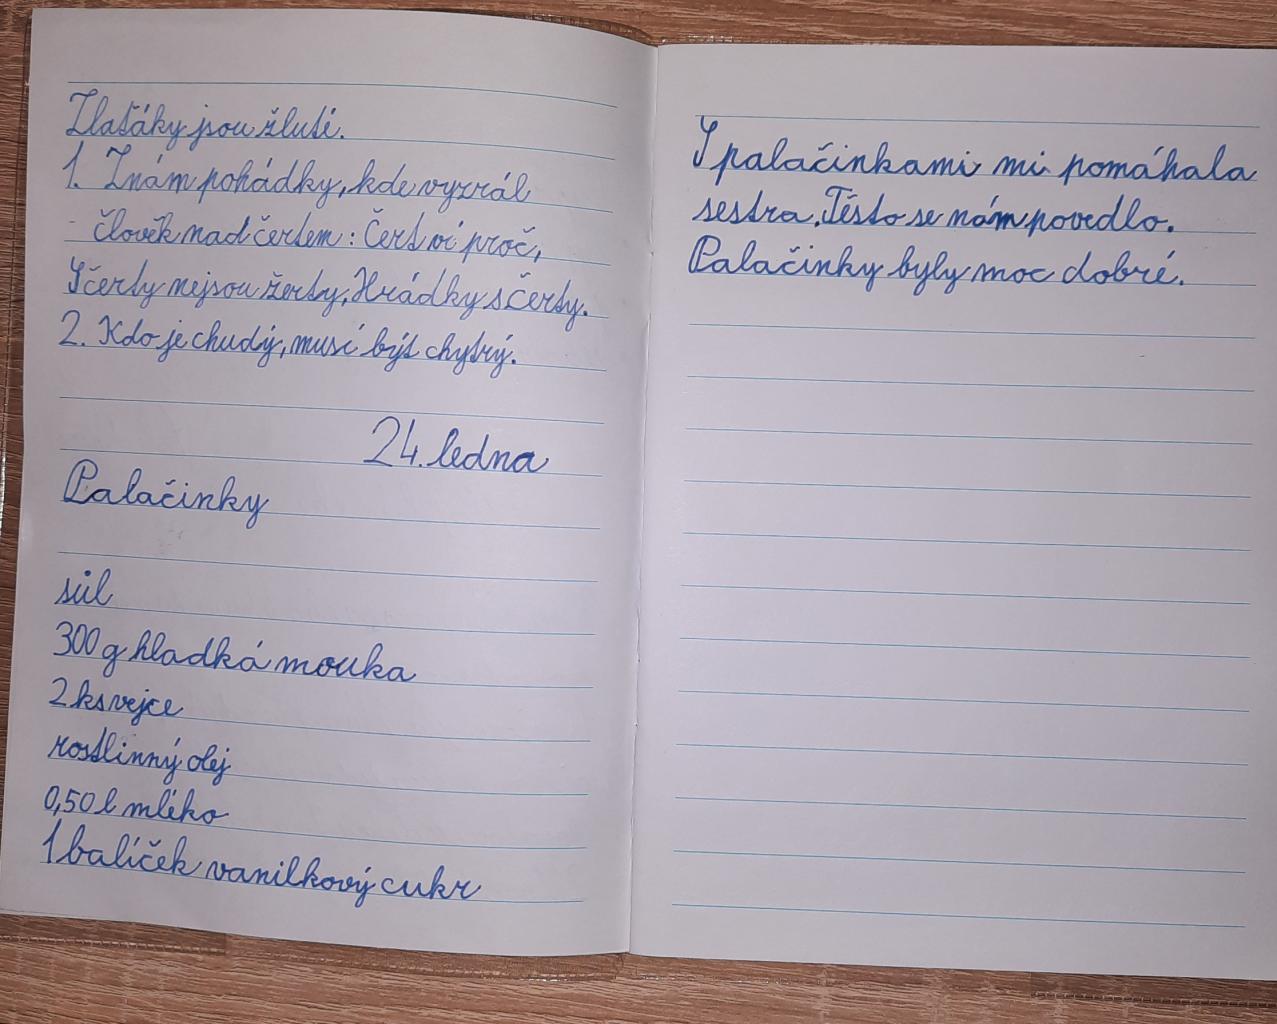 Zlaťáky jsou žluté.
1. Znám pohádky, kde vyzrál
- člověk nad čertem: Čert ví proč,
S čerty nejsou žerty, Hrádky s Čerty.
2. Kdo je chudý, musí být chytrý.
24. ledna
Palačinky
sůl
300 g hladká mouka
2 ks vejce
rostlinný olej
0,50 l mléko
1 balíček vanilkový cukr
S palačinkami mi pomáhala
sestra. Těsto se nám povedlo.
Palačinky byly moc dobré.